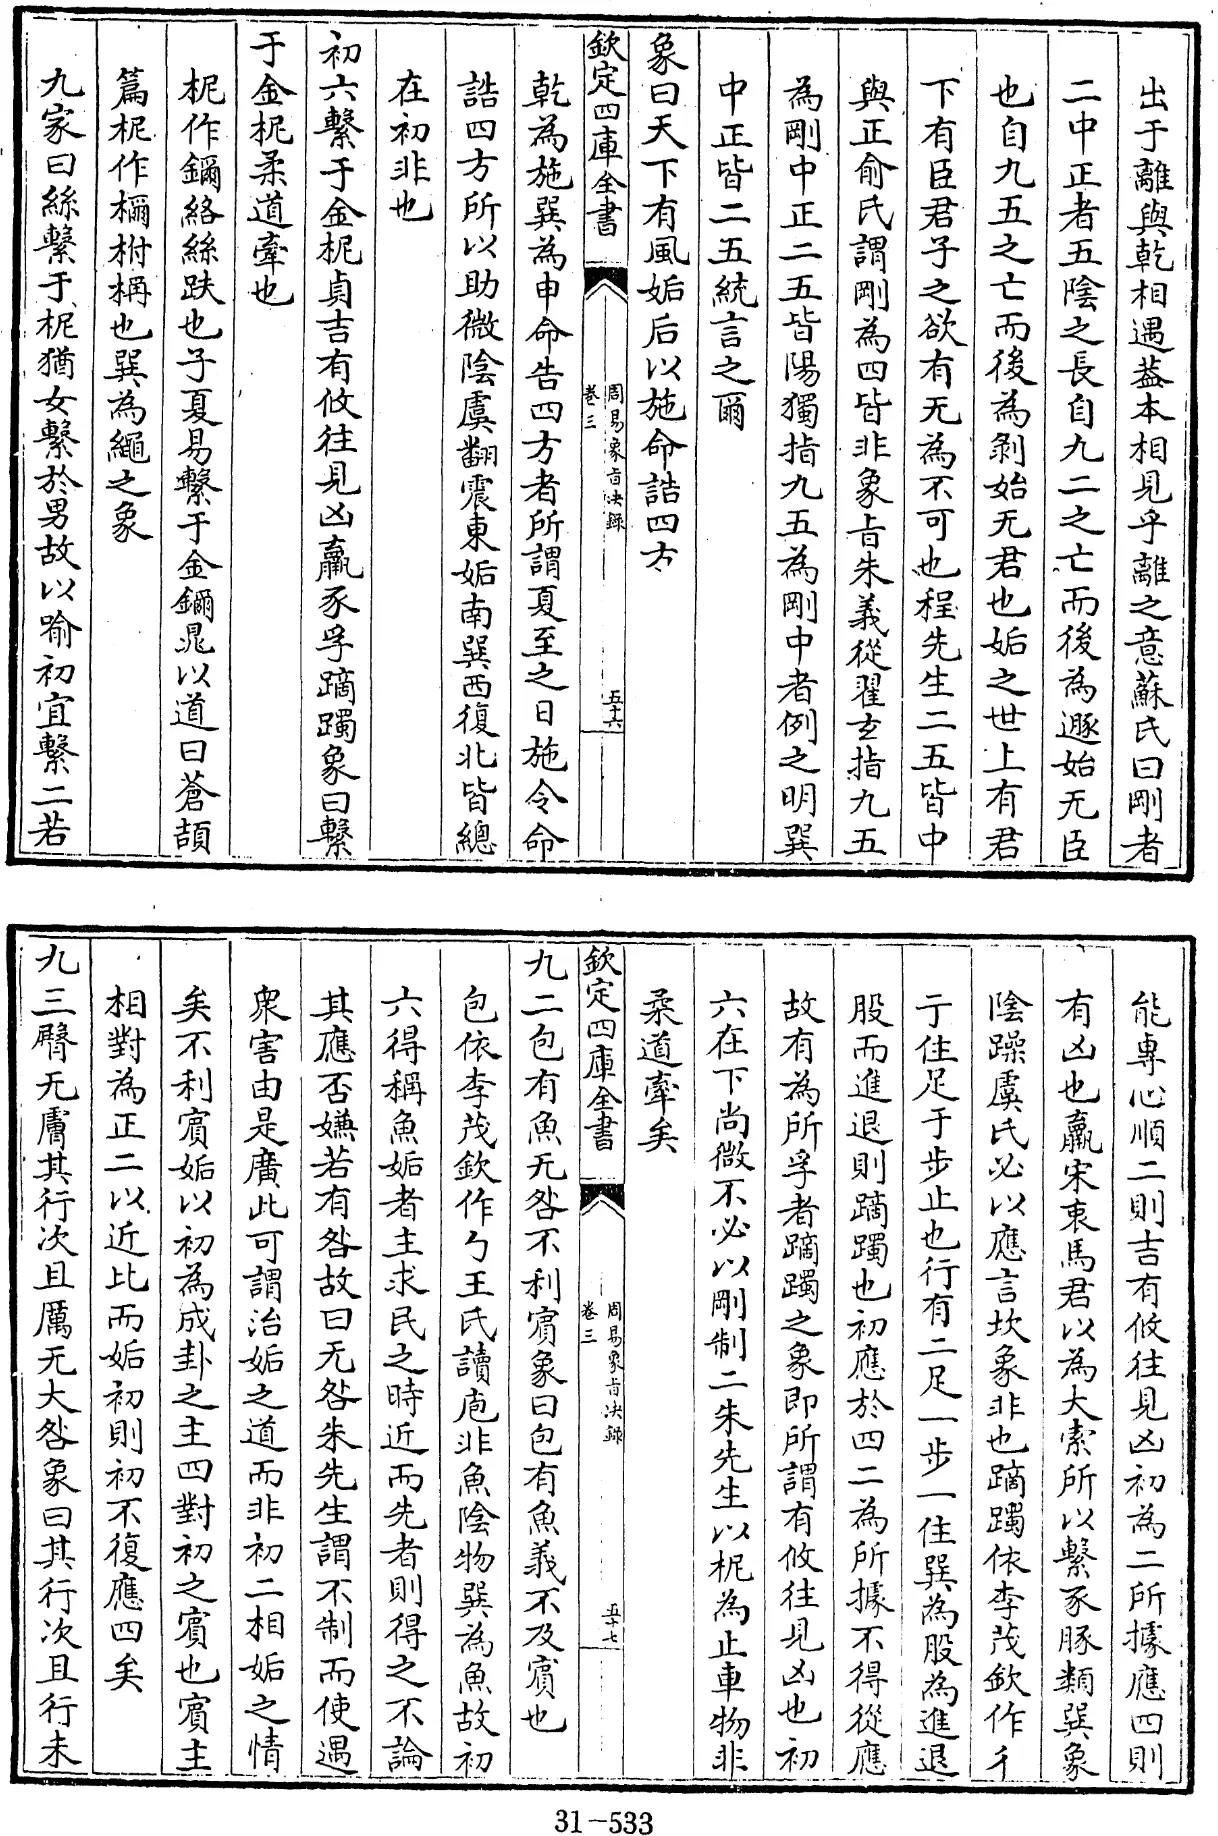 出于離與乾相遇葢本相見乎離之意蘇氏曰剛者
二中正者五陰之長自九二之亡而後為遯始无臣
也自九五之亡而後為剝始无君也姤之世上有君
下有臣君子之欲有无為不可也程先生二五皆中
與正俞氏謂剛為四皆非象旨朱義從翟玄指九五
為剛中正二五皆陽獨指九五為剛中者例之明巽
中正皆二五統言之爾
象曰天下有風姤后以施命誥四方
欽定四庫全書
周易象旨決録
卷三
五十六
乾為施巽為申命告四方者所謂夏至之日施令命
誥四方所以助微陰虞翻震東姤南巽西復北皆總
在初非也
初六繫于金柅貞吉有攸往見凶羸豕孚蹢躅象曰繫
于金柅柔道牽也
柅作鑈絡絲趺也子夏易繫于金鑈晁以道曰蒼頡
篇柅作檷柎檷也巽為繩之象
九家曰絲繫于柅猶女繫於男故以喻初宜繫二若
能專心順二則吉有攸往見凶初為二所據應四則
有凶也羸宋衷馬君以為大索所以繫豕豚類巽象
陰躁虞氏必以應言坎象非也蹢躅依李茂欽作彳
亍住足于步止也行有二足一步一住巽為股為進退
股而進退則蹢躅也初應於四二為所據不得從應
故有為所孚者蹢躅之象即所謂有攸往見凶也初
六在下尚微不必以剛制二朱先生以柅為止車物非
柔道牽矣
欽定四庫全書
周易象旨決録
卷三
五十七
九二包有魚无咎不利賓象曰包有魚義不及賓也
包依李茂欽作勹王氏讀庖非魚陰物巽為魚故初
六得稱魚姤者主求民之時近而先者則得之不論
其應否嫌若有咎故曰无咎朱先生謂不制而使遇
衆害由是廣此可謂治姤之道而非初二相姤之情
矣不利賓姤以初為成卦之主四對初之賓也賓主
相對為正二以近比而姤初則初不復應四矣
九三臀无膚其行次且厲无大咎象曰其行次且行未
31-533